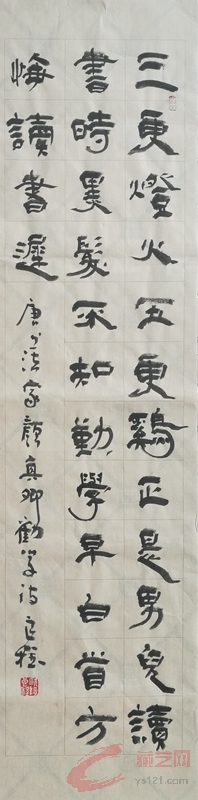 三更燈火五更鷄正是男兒讀
書時黑髮不知勤學早白首方
悔讀書遲
唐書法家顏真卿勸學詩
ys121.com